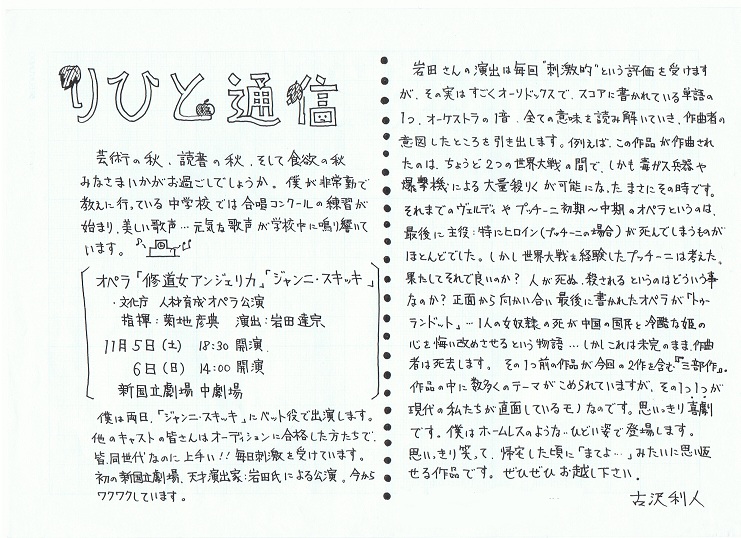 りひと通信
芸術の秋、読書の秋、そして食欲の秋
みなさまいかがお過ごしでしょうか。僕が非常勤で
教えに行っている中学校では合唱コンクールの練習が
始まり、美しい歌声…元気な歌声が学校中に鳴り響いて
います。
オペラ「修道女アンジェリカ」「ジャンニ・スキッキ」
・文化庁 人材育成オペラ公演
指揮：菊地彦典 演出：岩田達宗
11月5日(土) 18:30 開演
6日(日) 14:00 開演
新国立劇場 中劇場
僕は両日、「ジャンニ・スキッキ」にベット役で出演します。
他のキャストの皆さんはオーディションに合格した方たちで、
皆、同世代なのに上手い!!毎日刺激を受けています。
初の新国立劇場、天才演出家:岩田氏による公演。今から
ワクワクしています。
岩田さんの演出は毎回"刺激的"という評価を受けます
が、その実はすごくオーソドックスで、スコアに書かれている単語の
1つ、オーケストラの1音、全ての意味を読み解いていき、作曲者の
意図したところを引き出します。例えば、この作品が作曲され
たのは、ちょうど2つの世界大戦の間で、しかも毒ガス兵器や
爆撃機による大量殺りくが可能になったまさにその時です。
それまでのヴェルディやプッチーニ初期～中期のオペラというのは、
最後に主役:特にヒロイン(プッチーニの場合)が死んでしまうものが
ほとんどでした。しかし世界大戦を経験したプッチーニは考えた、
果たしてそれで良いのか？人が死ぬ、殺されるというのはどういう事
なのか？正面から向かい合い最後に書かれたオペラが『トゥー
ランドット』…1人の女奴隷の死が中国の国民と冷酷な姫の
心を悔い改めさせるという物語…しかしこれは未完のまま、作曲
者は死去します。その1つ前の作品が今回の2作を含む『三部作』。
作品の中に数多くのテーマがこめられていますが、その1つ1つが
現代の私たちが直面しているモノなのです。思いっきり喜劇
です。僕はホームレスのような…ひどい姿で登場します。
思いっきり笑って、帰宅した頃に「まてよ…」みたいに思い返
せる作品です。ぜひぜひお越し下さい。
古沢利人